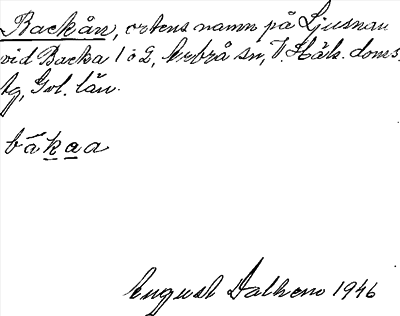 Backån, ortens namn på Ljusnan
vid Backa 1 o 2, Arbrå sn, V. Häls. doms.
tg, Gvl. län.
båkaa
August Dalhem 1946